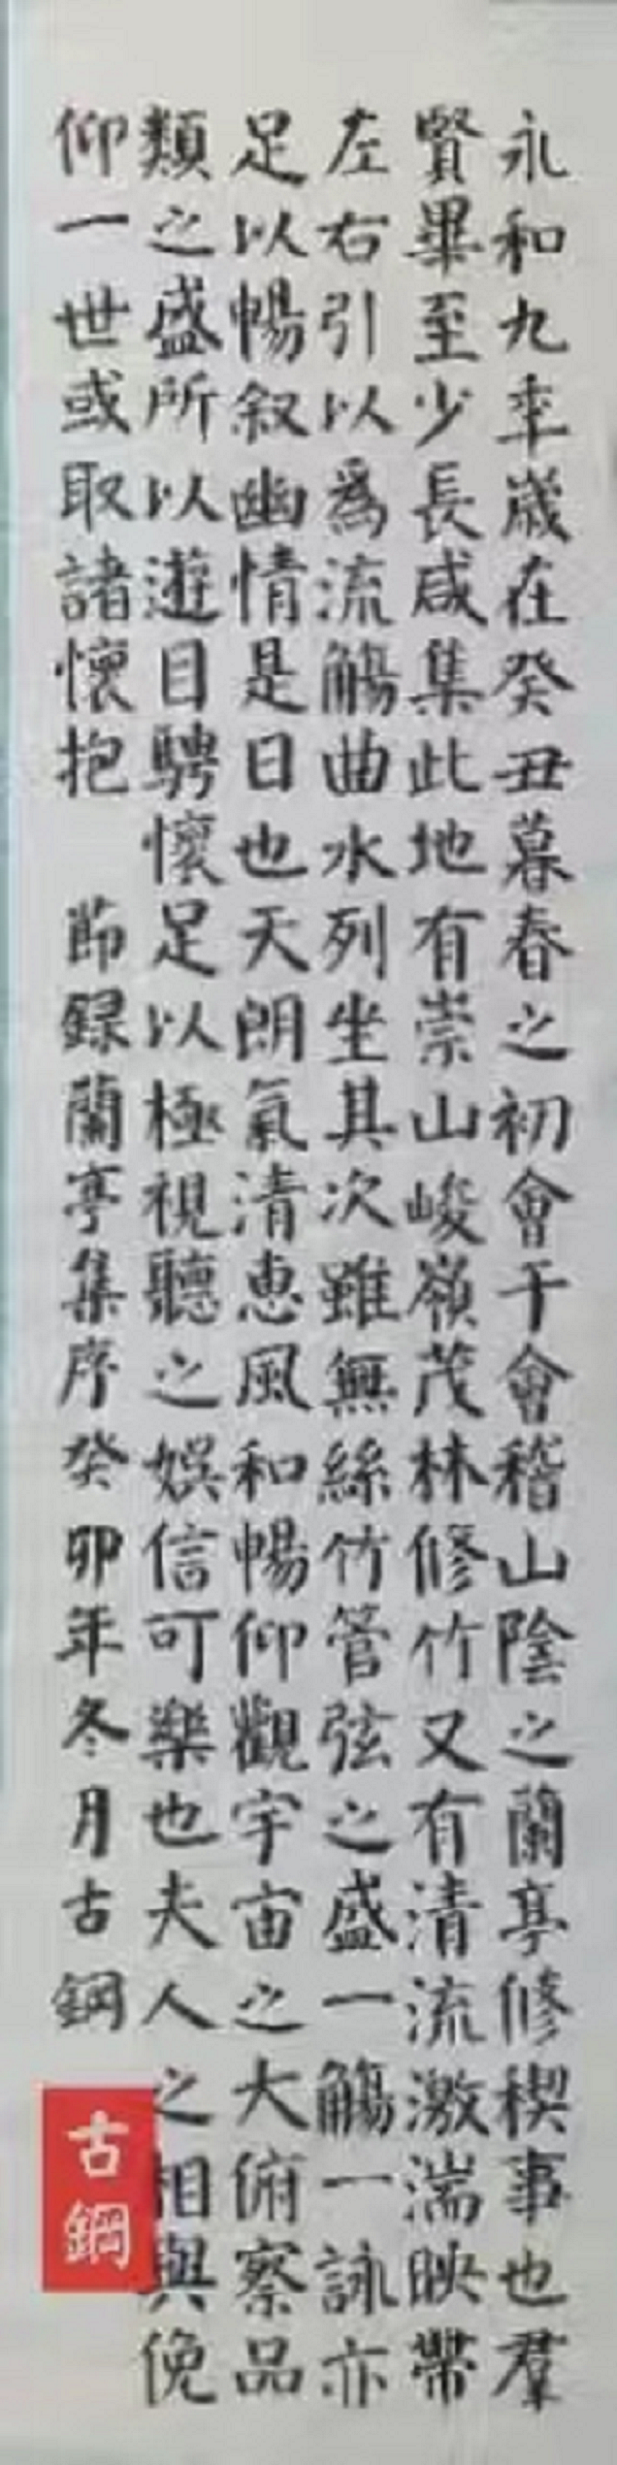 永和九年歲在癸丑暮春之初會于會稽山陰之蘭亭修稧事也羣
賢畢至少長咸集此地有崇山峻嶺茂林修竹又有清流激湍映帶
左右引以為流觴曲水列坐其次雖無絲竹管弦之盛一觴一詠亦
足以暢叙幽情是日也天朗氣清惠風和暢仰觀宇宙之大俯察品
類之盛所以遊目騁懷足以極視聽之娛信可樂也夫人之相與俛
仰一世或取諸懷抱 節録蘭亭集序癸卯年冬月古鋼
古鋼